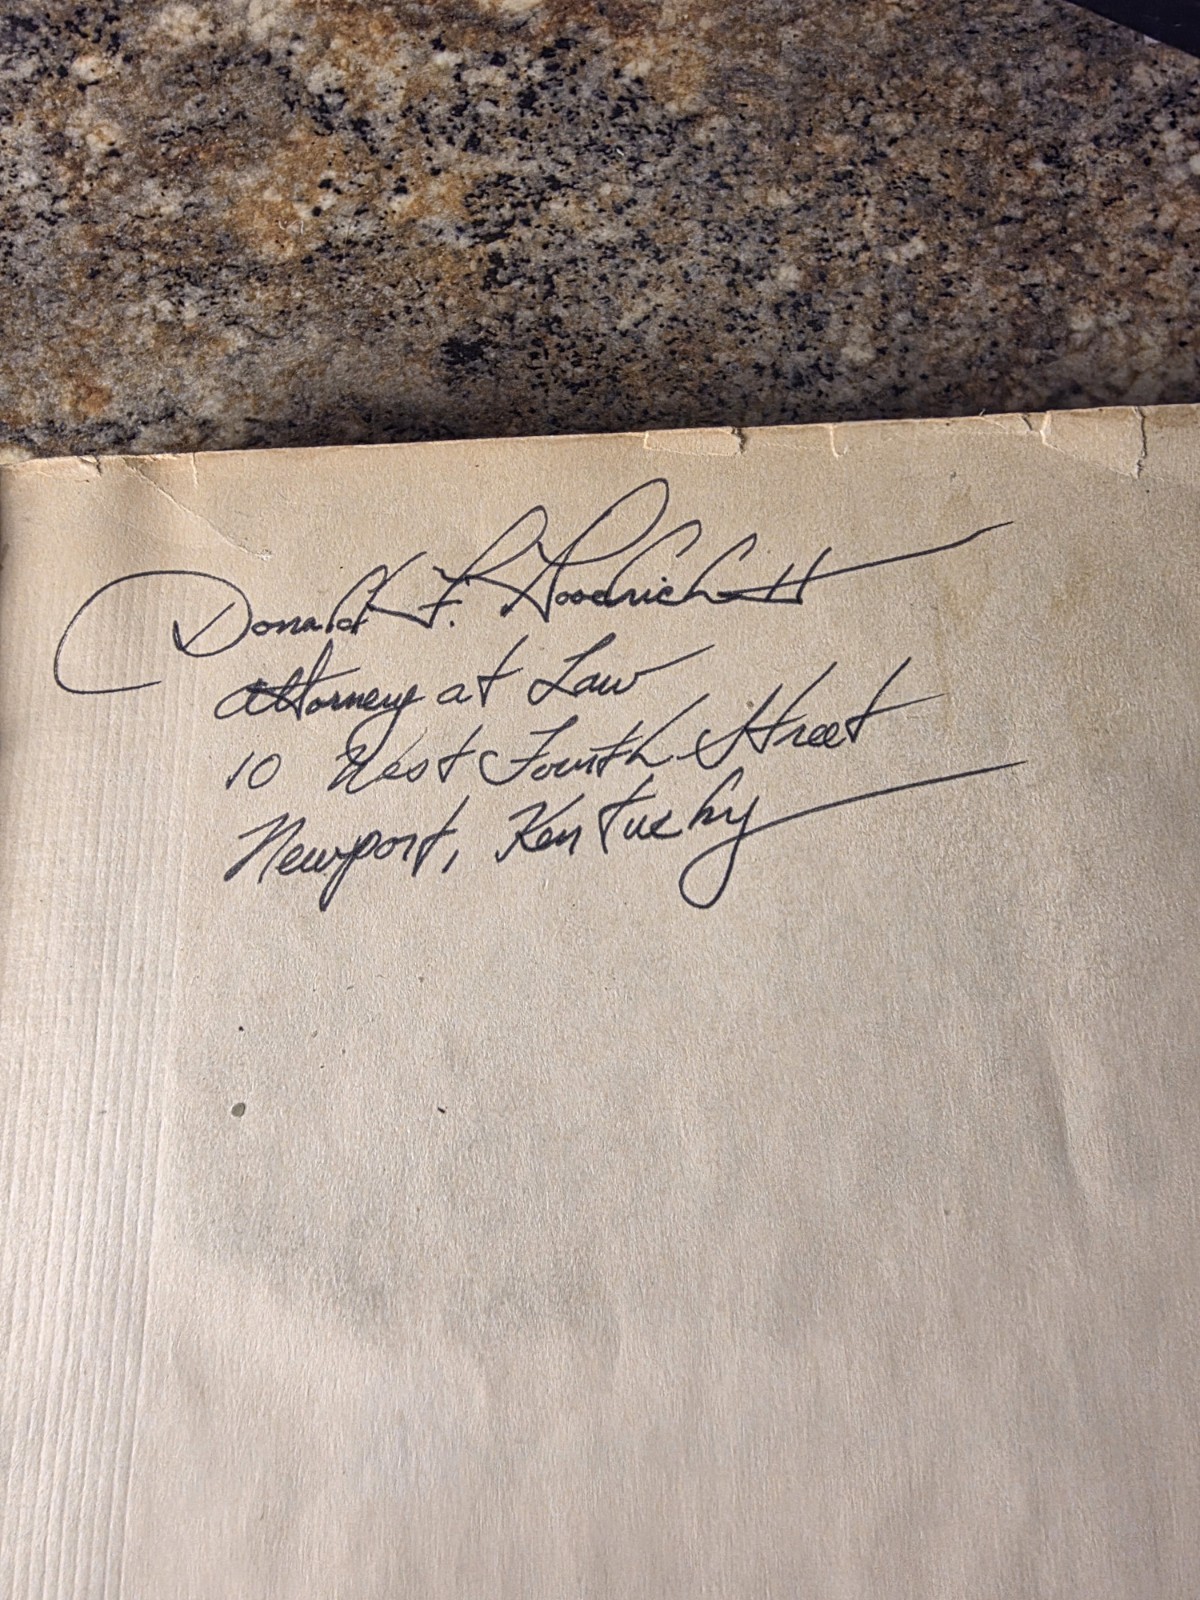 Donald F. Goodrich
Attorney at Law
10 West Fourth Street
Newport, Kentucky